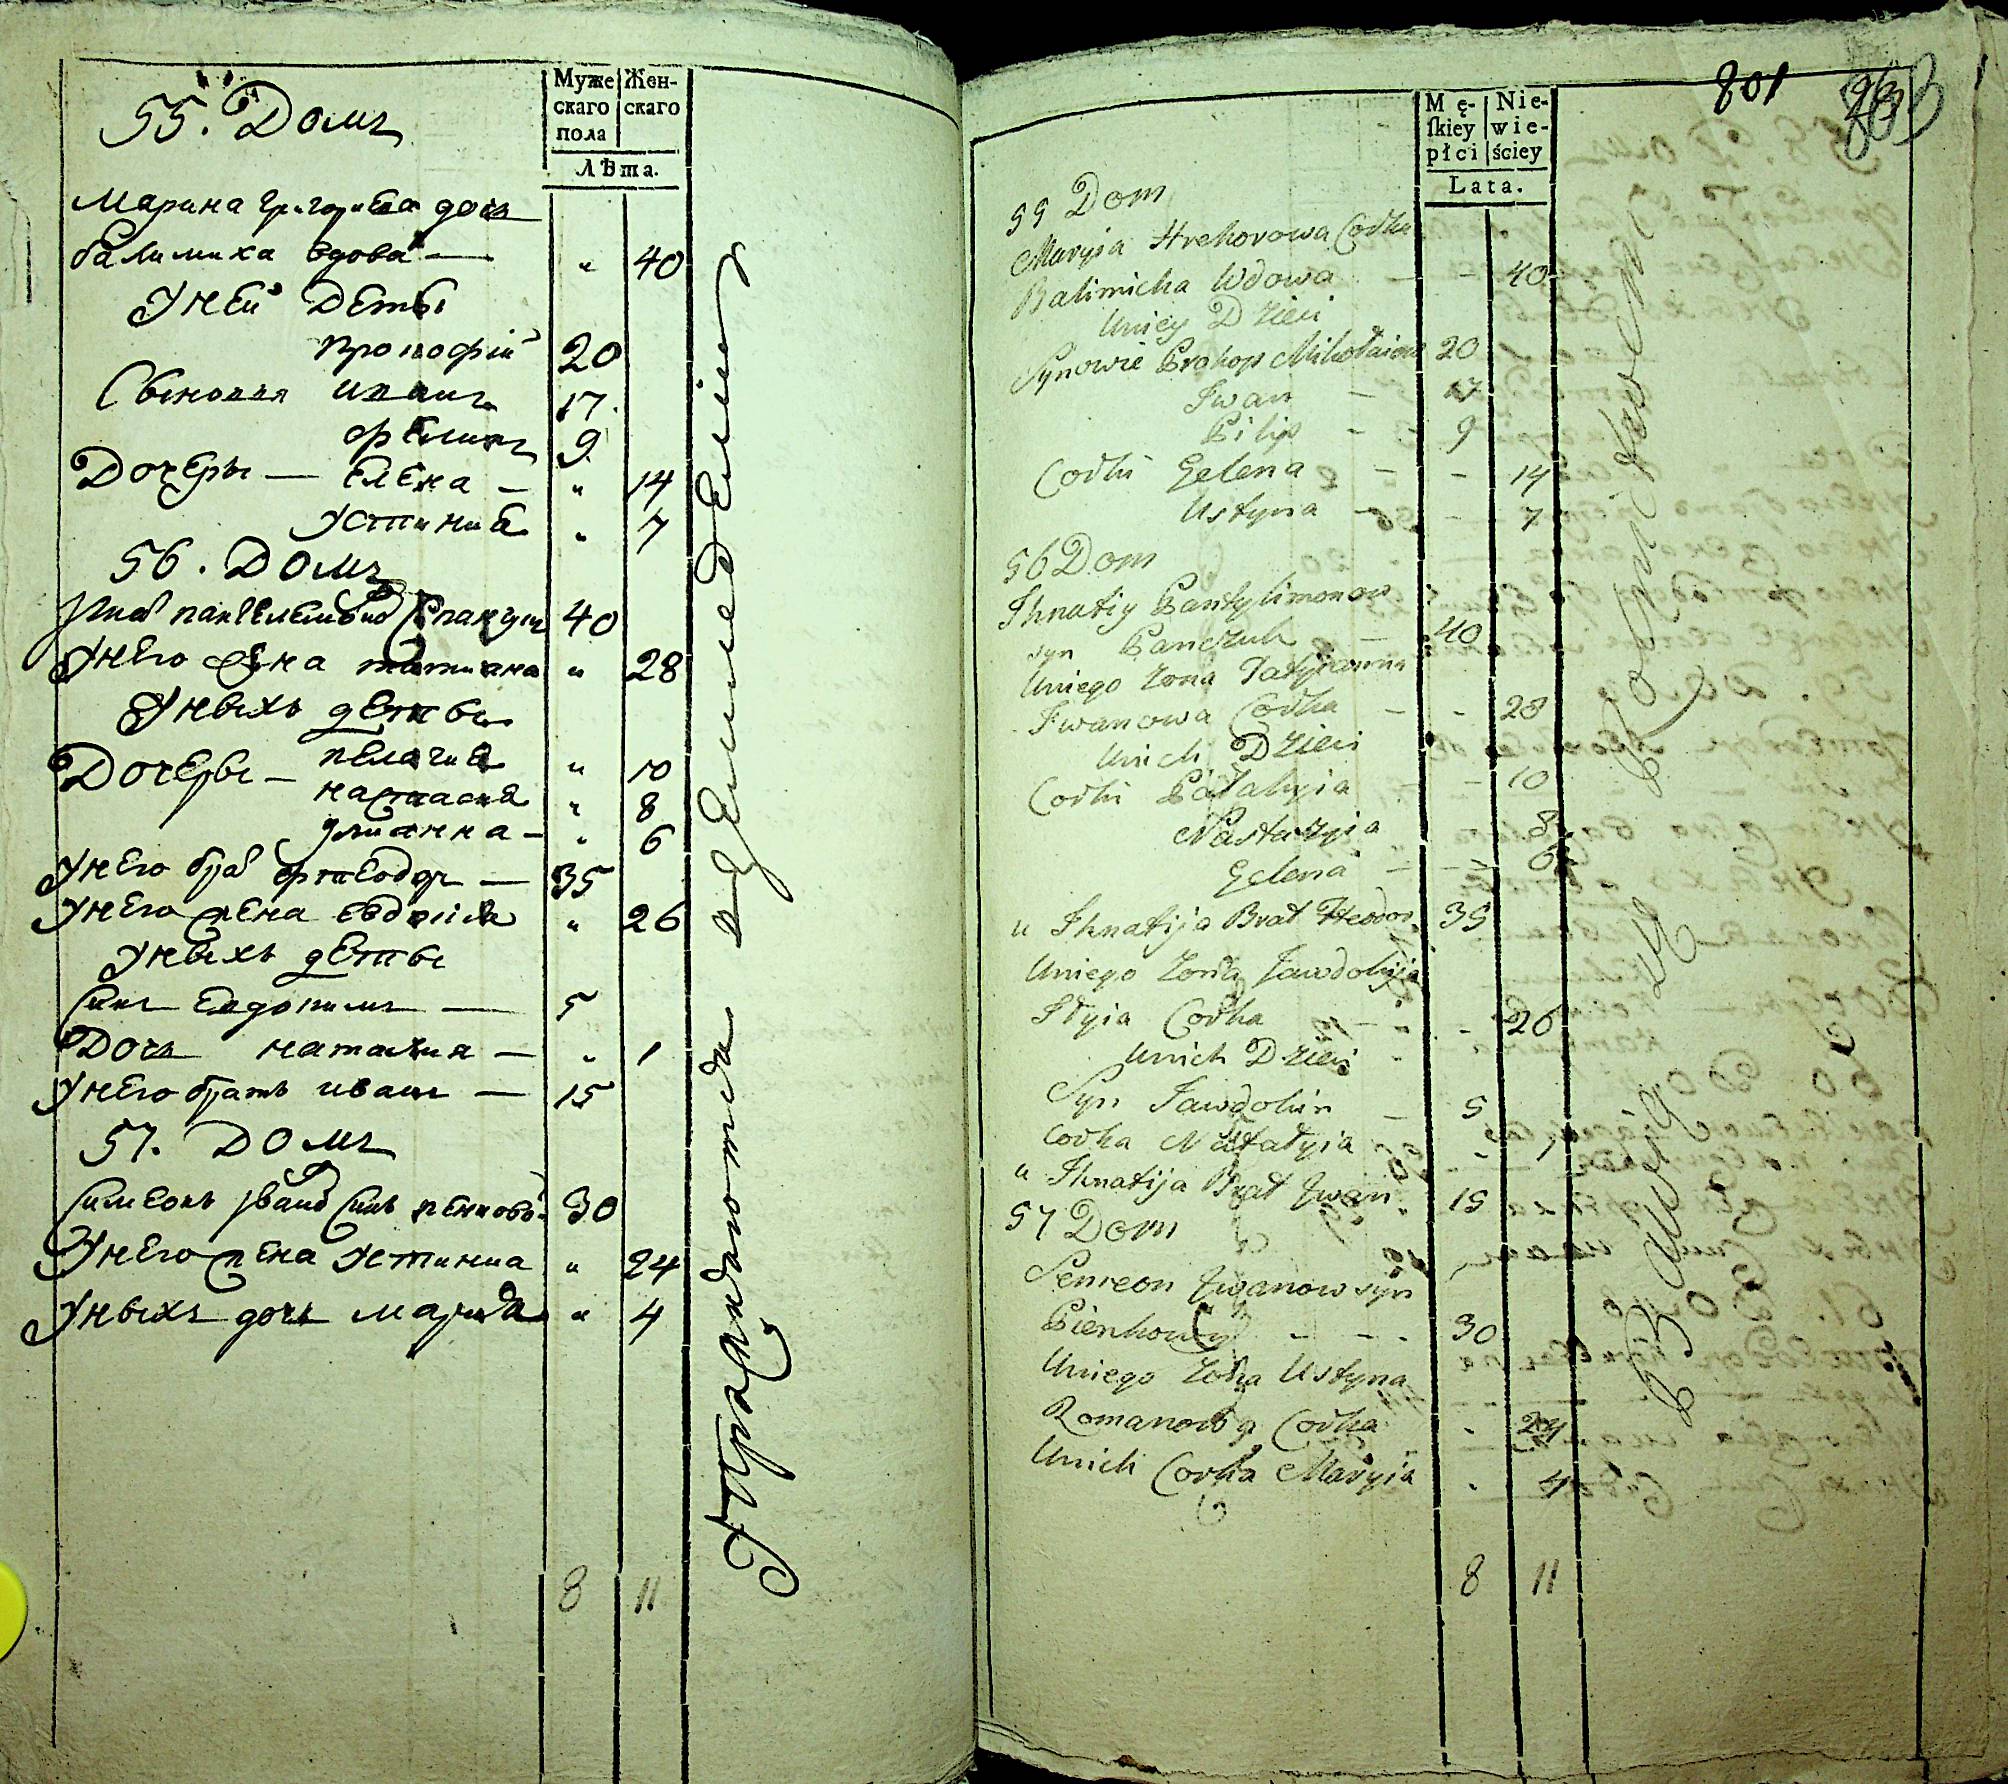 55. Домъ
Муже скаго пола
Жен- скаго
Лѣта.
Марина Григорьева дочь
балимиха вдова — " 40
У ней дети
Прокофий 20
Сыновья Иванъ 17.
Филипъ 9
Дочеры — Елена — " 14
Устиния " 7
56. Домъ
40
У него жена татиана " 28
У нихъ дети
Дочеры — пелагия " 10
настасия " 8
улианна — " 6
У него братъ фтеодоръ — 35
У него жена Евдокия " 26
У нихъ дети
Синъ Евдокимъ — 5
Дочь наталия — " 1
У него братъ иванъ — 15
57. Домъ
Симеонъ Ивановъ Синъ пенковой 30
У него жена Устиниа " 24
У нихъ дочь Мария " 4
8 11
801
Mę- ſkiey płci
Nie- wie- ściey
Lata.
55 Dom
Maryia Hrehorowa Corka
Balimicha Wdowa - - 40
Uniey Dzieci
Synowie Prokop Mikołaiow 20
Iwan - 17
Pilip - - 9
Corki Helena - - 14
Ustyna - - 7
56 Dom
Ihnatiy Pantylimonow
syn Panczuk - 40
Uniego Zona Tatyianna
Iwanowa Corka - - 28
Unich Dzieci
Corki Pałahyia - - 10
Nastazyia 8
Helena - - 6
u Ihnatija Brat Fteodor 35
Uniego Zona Jawdokija
Iłyia Corka - - 26
Unich Dzieci
Syn Jawdokim - 5
Corka Natałyia - 1
u Ihnatija Brat Iwan 15
57 Dom
Semeon Iwanow syn
Pienkowy - - - 30
Uniego Zona Ustyna
Romanowa Corka - 24
Unich Corka Maryia - 4
8 11